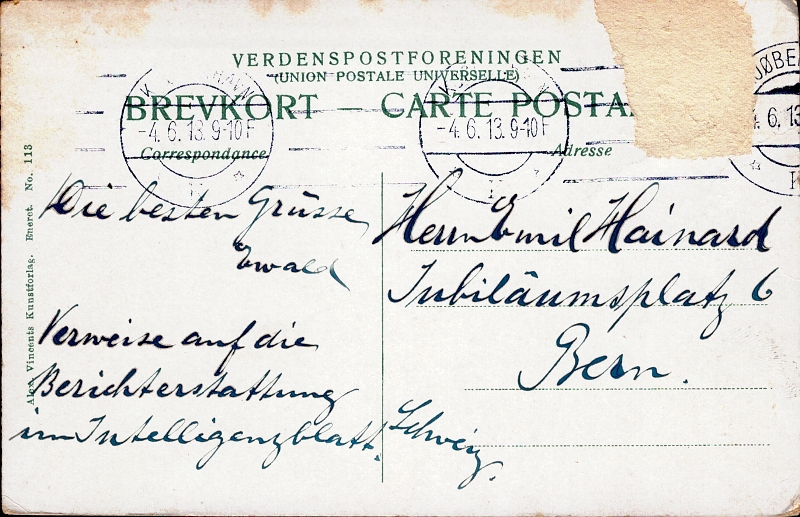 VERDENSPOSTFORENINGEN
(UNION POSTALE UNIVERSELLE)
BREVKORT — CARTE POSTA
-4.6.13.9-10F
-4.6.13.9-10F
4.6.13
JØBE
K
Correspondance
Adresse
Die besten Grüsse
Ewald
Verweise auf die
Berichterstattung
im Intelligenzblatt.
Herrn Emil Hainard
Jubiläumsplatz 6
Bern.
Schweiz.
Alex. Vincents Kunstforlag. Eneret. No. 113